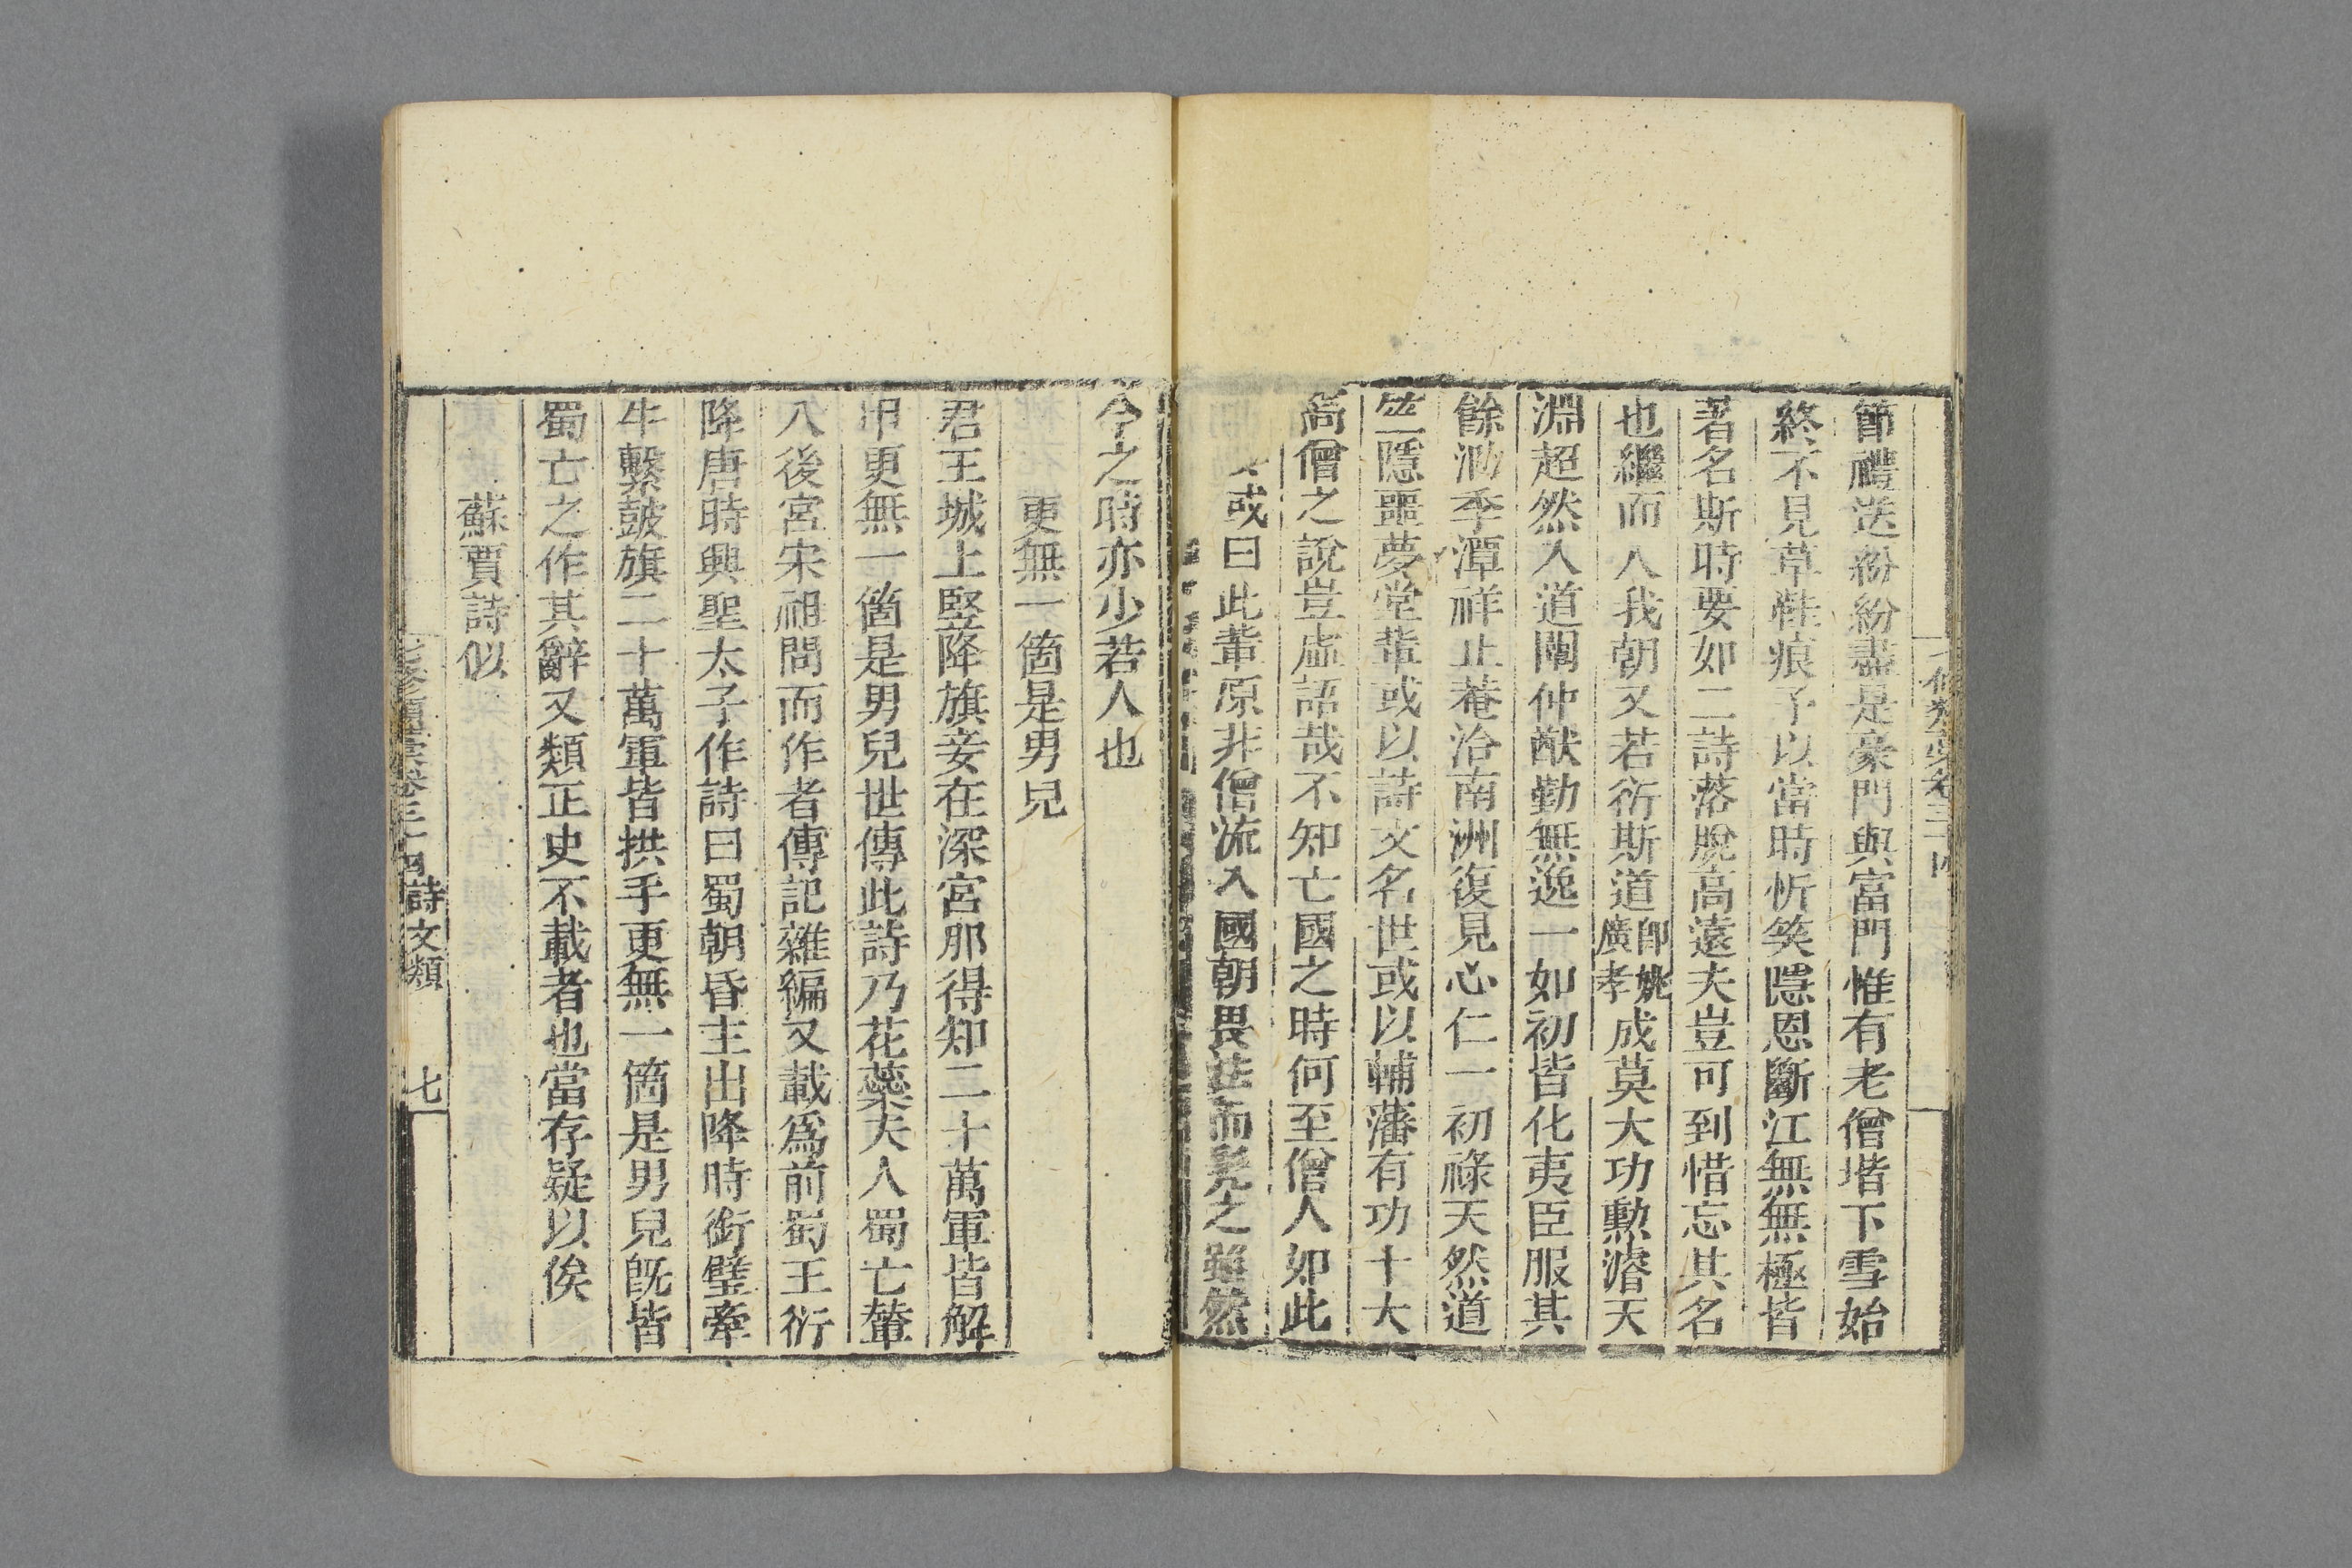 節禮送紛紛盡是豪門與富門惟有老僧堦下雪始
終不見草鞋痕予以當時忻笑隱恩斷江無無極皆
著名斯時要如二詩落脫高遠夫豈可到惜忘其名
也繼而入我朝又若衍斯道即姚廣孝成莫大功勲濬天
淵超然入道闡仲猷勤無逸一如初皆化夷臣服其
餘泐季潭祥止菴洽南洲復見心仁一初祿天然道
竺隱噩夢堂軰或以詩文名世或以輔藩有功十大
高僧之說豈虛語哉不知亡國之時何至僧人如此
或曰此軰原非僧流入國朝畏法而髠之雖然
今之時亦少若人也
更無一箇是男兒
君王城上竪降旗妾在深宮那得知二十萬軍皆解
甲更無一箇是男兒世傳此詩乃花蘂夫人蜀亡輦
入後宮宋祖問而作者傳記雜編又載爲前蜀王衍
降唐時興聖太子作詩曰蜀朝昏主出降時銜璧牽
牛繫皷旗二十萬軍皆拱手更無一箇是男兒旣皆
蜀亡之作其辭又類正史不載者也當存疑以俟
蘇賈詩似
七修類稾卷三十四 詩文類 七